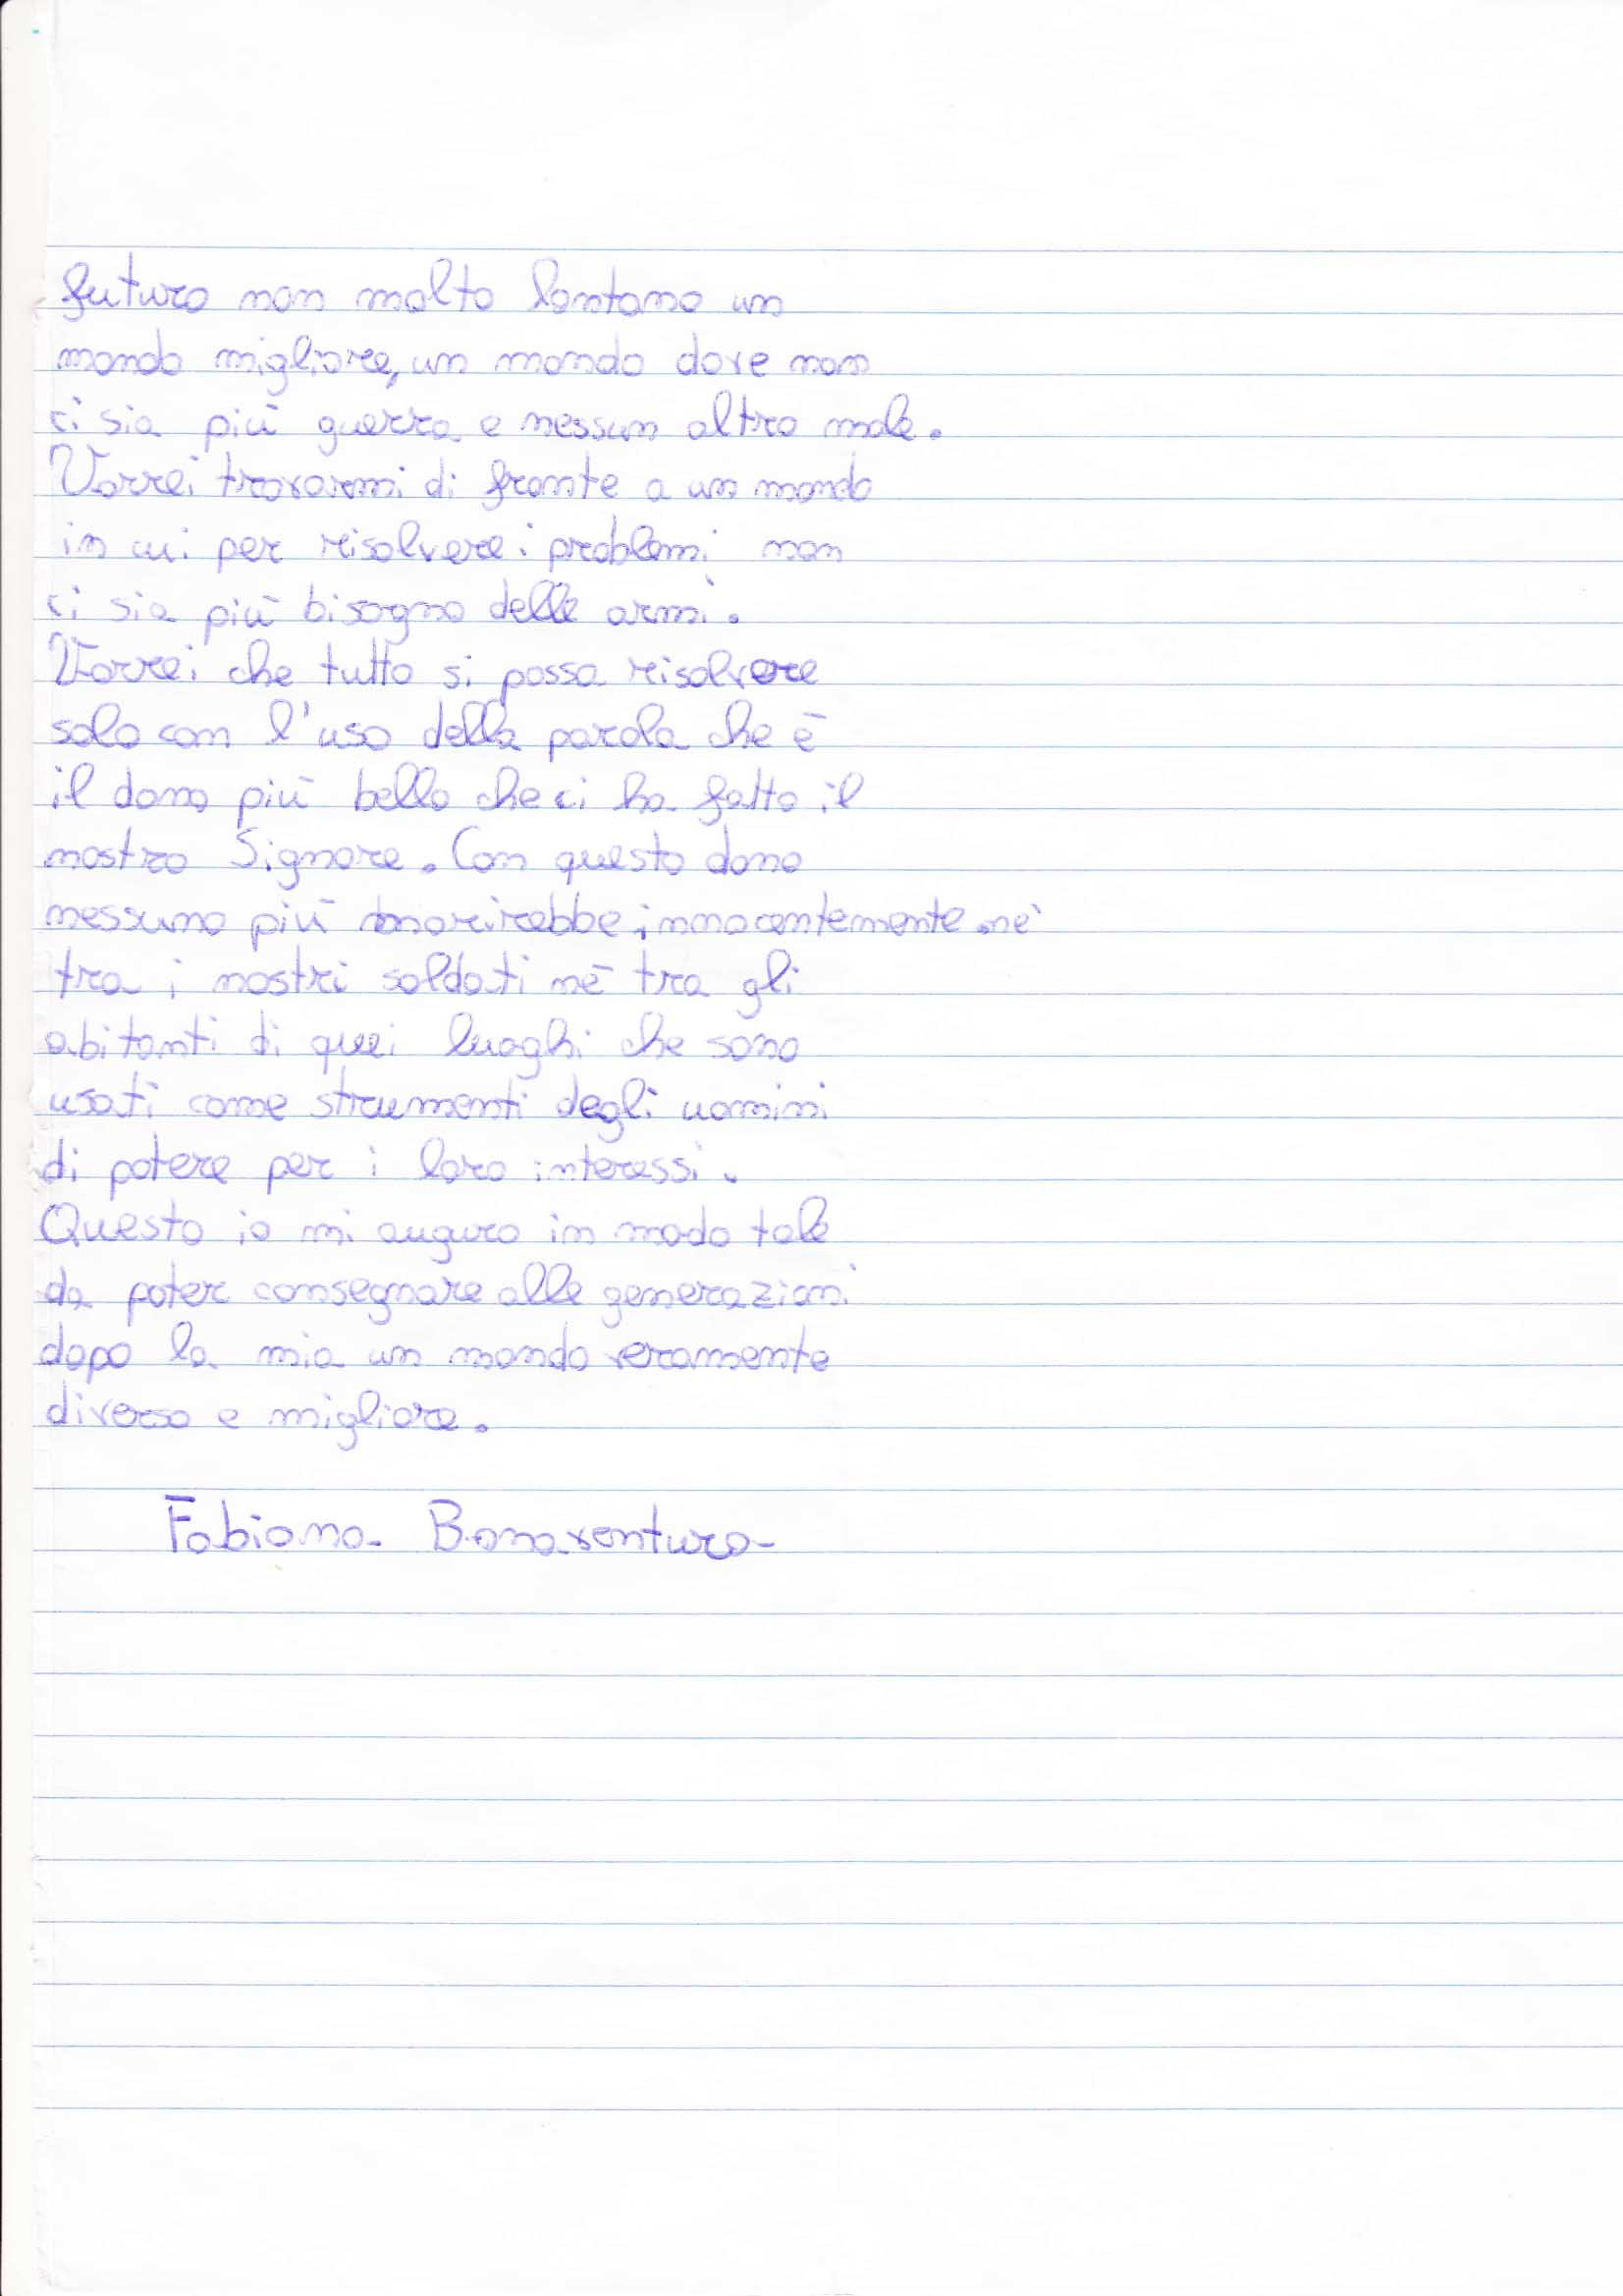 futuro non molto lontano un
mondo migliore, un mondo dove non
ci sia più guerra e nessun altro male.
Vorrei trovarmi di fronte a un mondo
in cui per risolvere i problemi non
ci sia più bisogno delle armi.
Vorrei che tutto si possa risolvere
solo con l'uso della parola che è
il dono più bello che ci ha fatto il
nostro Signore. Con questo dono
nessuno più morirebbe innocentemente nè
tra i nostri soldati nè tra gli
abitanti di quei luoghi che sono
usati come strumenti degli uomini
di potere per i loro interessi.
Questo io mi auguro in modo tale
da poter consegnare alle generazioni
dopo la mia un mondo veramente
diverso e migliore.
Fabiana Bonaventura